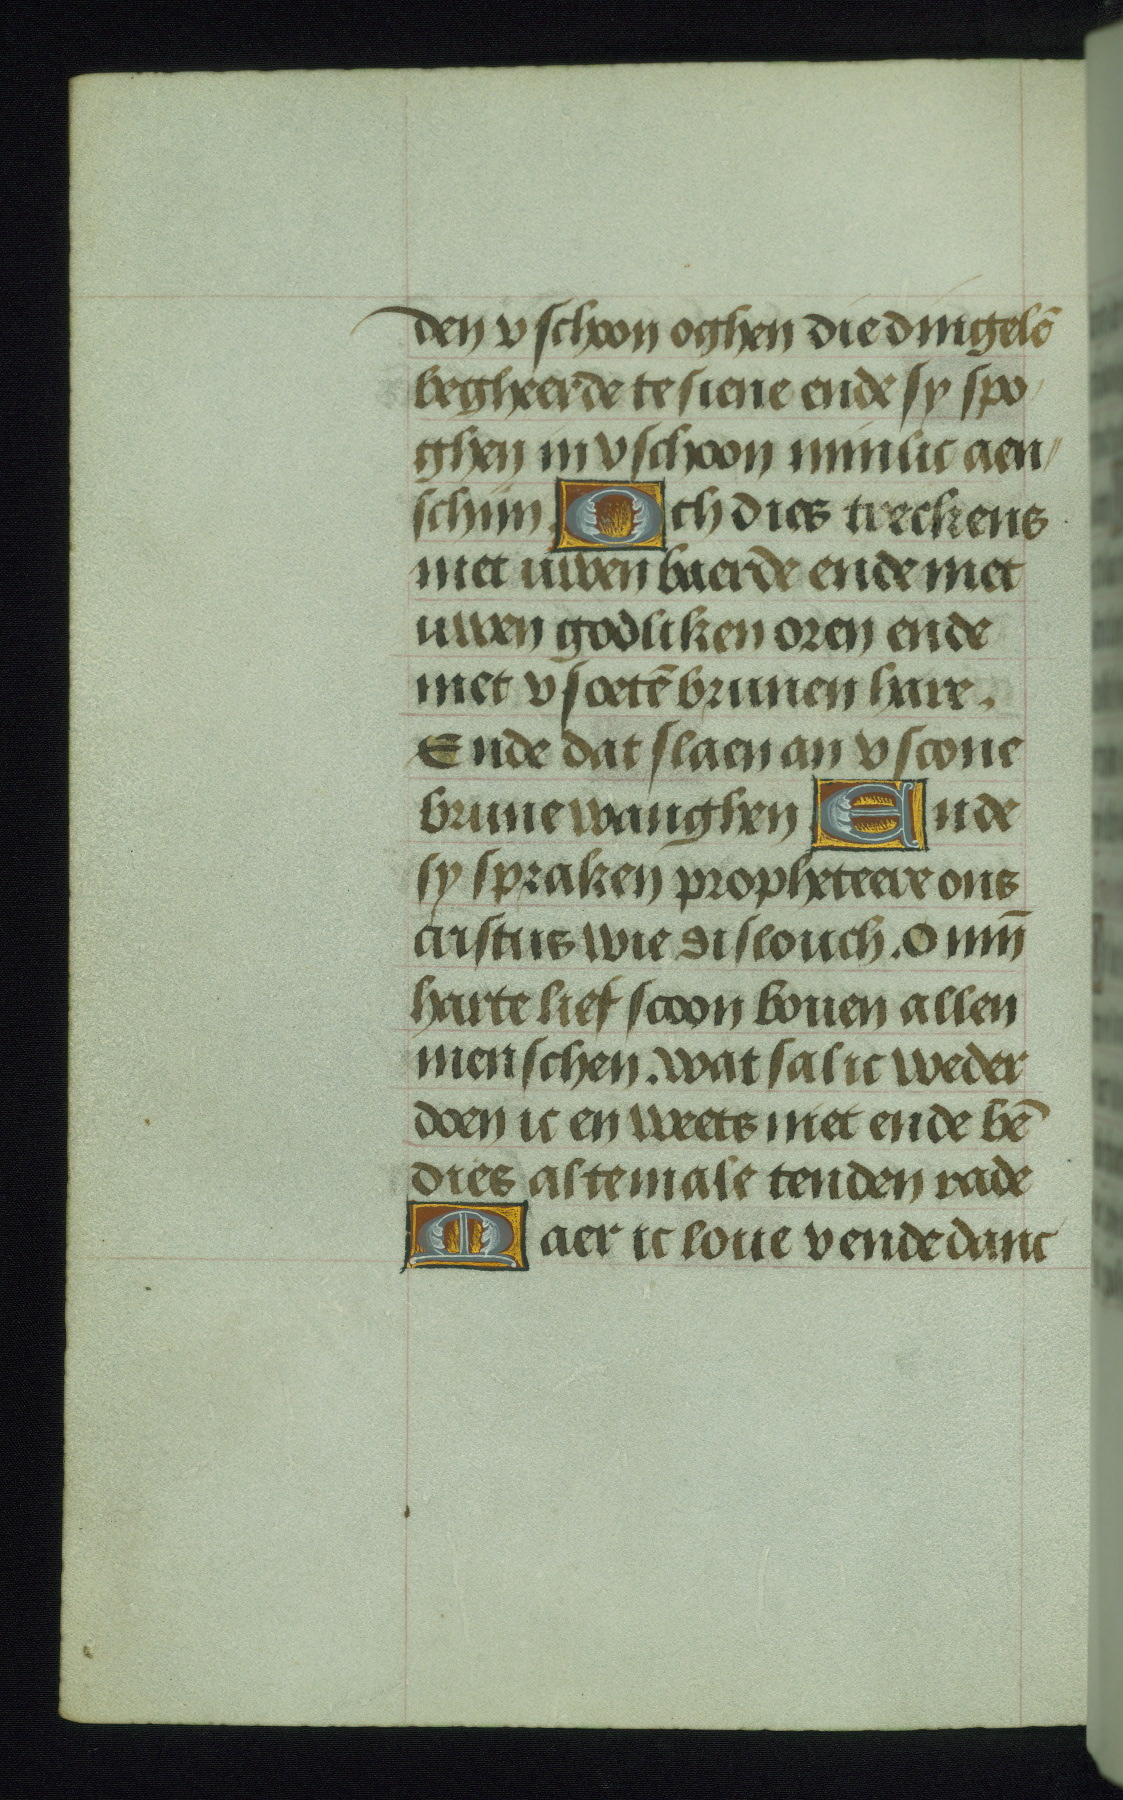 den v schoon oghen die dingelē
begheerde te siene ende sy spo
ghen in v schoon minlic aen〃
schijn Och dies treckens
met uwen baerde ende met
uwen godliken oren ende
met v soetē brunen hare.
Ende dat slaen an v scone
brune wanghen Ende
sy spraken propheteere ons
cristus wie di slouch. O mijn
harte lief scoon bouen allen
menschen. wat sal ic weder
doen ic en weets niet ende bē
dies altemale tenden rade
Maer ic loue v ende danc